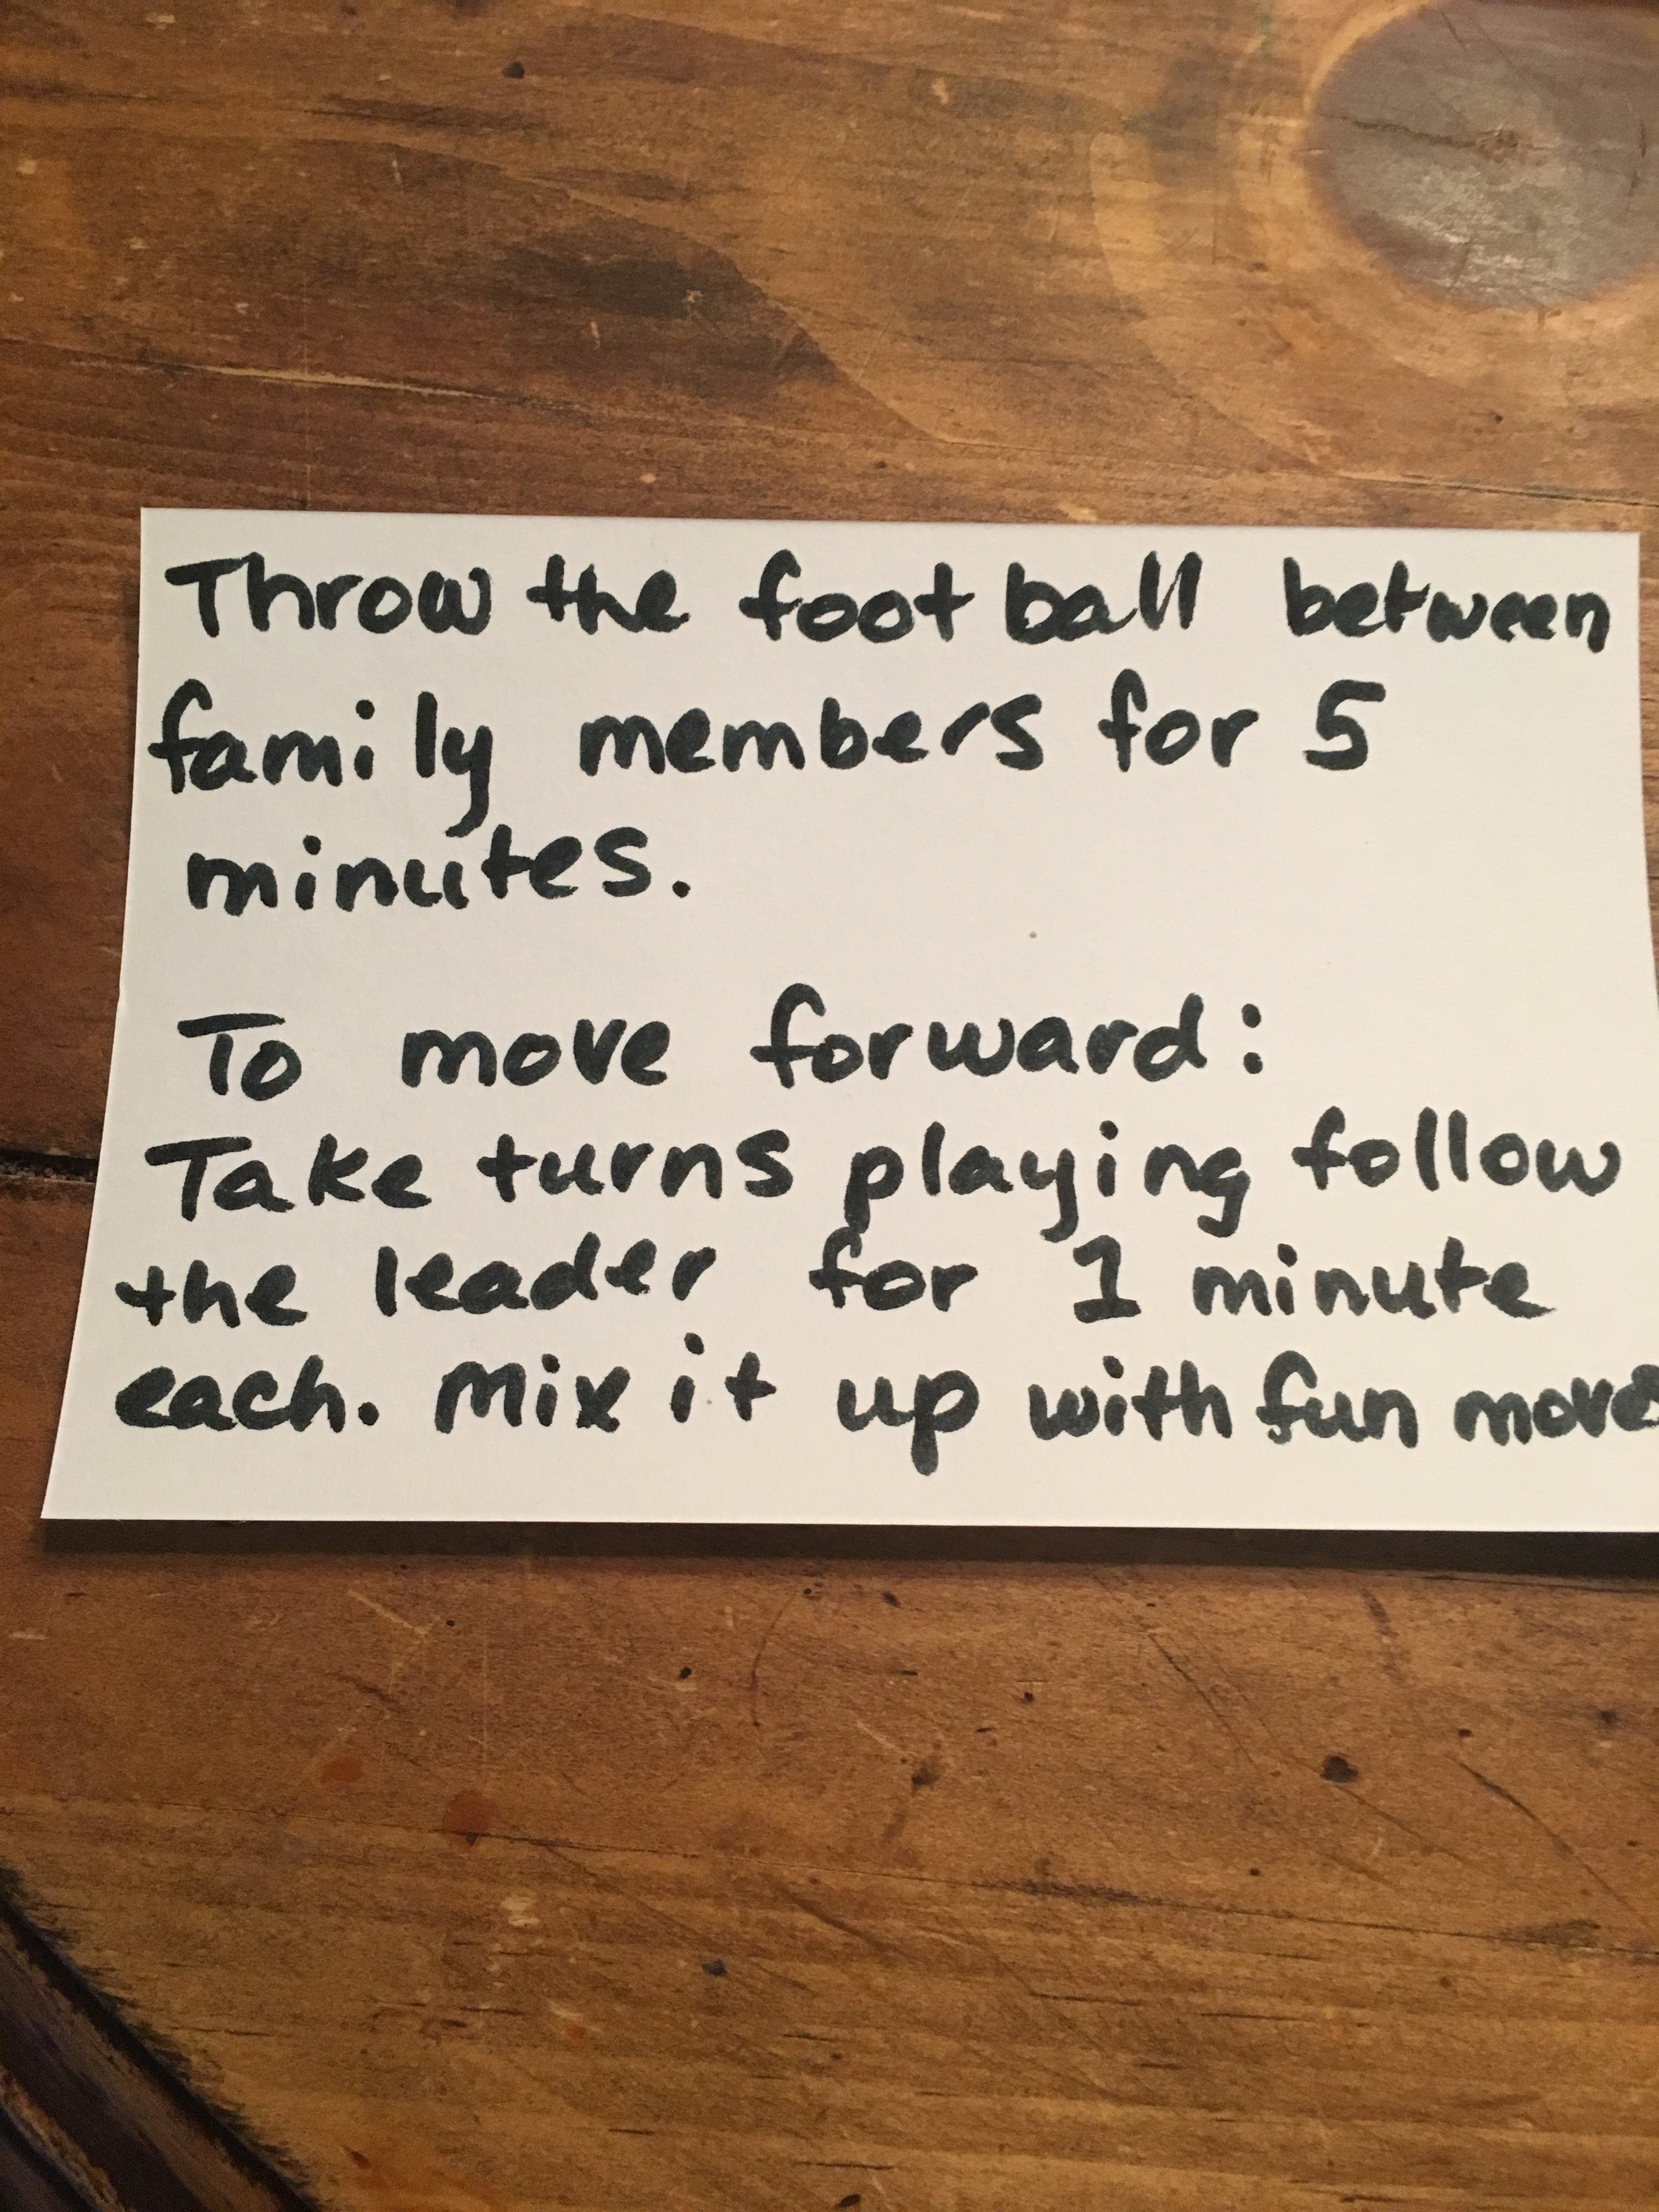 Throw the foot ball between
family members for 5
minutes.
To move forward:
Take turns playing follow
the leader for 1 minute
each. mix it up with fun